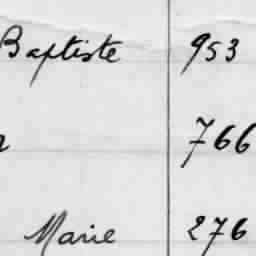 Baptiste 953
766
Marie 276